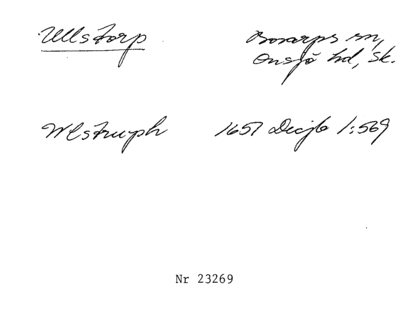 Ullstorp
Bosarps sn,
Onsjö hd, Sk.
Wlstruph 1657 Decjb 1:569
Nr 23269